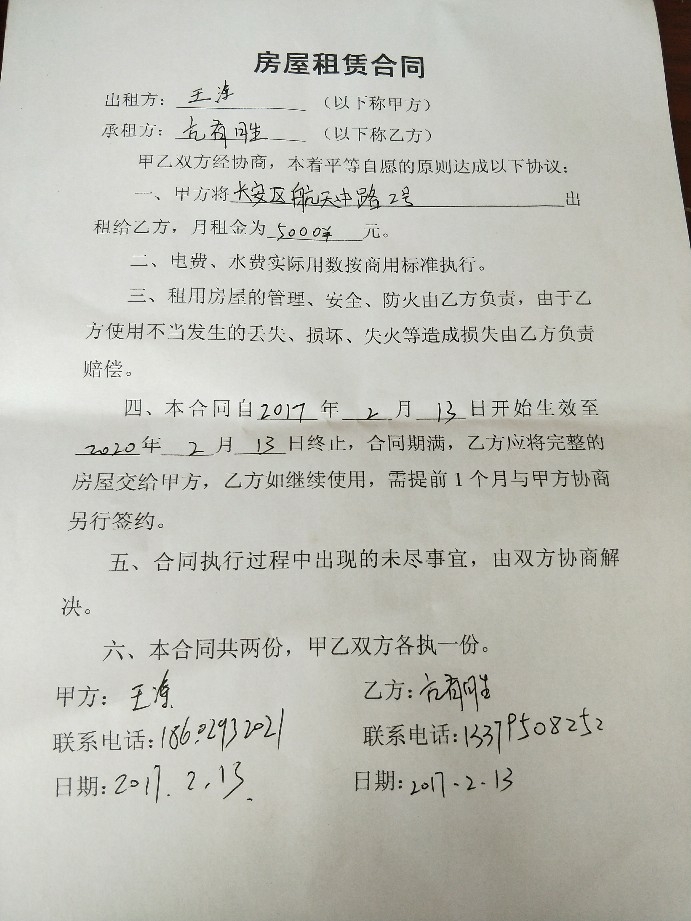 房屋租赁合同
出租方：王涛 （以下称甲方）
承租方：亢有生 （以下称乙方）
甲乙双方经协商，本着平等自愿的原则达成以下协议：
一、甲方将长安区航天中路2号 出
租给乙方，月租金为5000¥元。
二、电费、水费实际用数按商用标准执行。
三、租用房屋的管理、安全、防火由乙方负责，由于乙
方使用不当发生的丢失、损坏、失火等造成损失由乙方负责
赔偿。
四、本合同自2017年2月13日开始生效至
2020年2月13日终止，合同期满，乙方应将完整的
房屋交给甲方，乙方如继续使用，需提前1个月与甲方协商
另行签约。
五、合同执行过程中出现的未尽事宜，由双方协商解
决。
六、本合同共两份，甲乙双方各执一份。
甲方：王 乙方：
联系电话：18602932021 联系电话：13379508252
日期：2017.2.13. 日期：2017.2.13